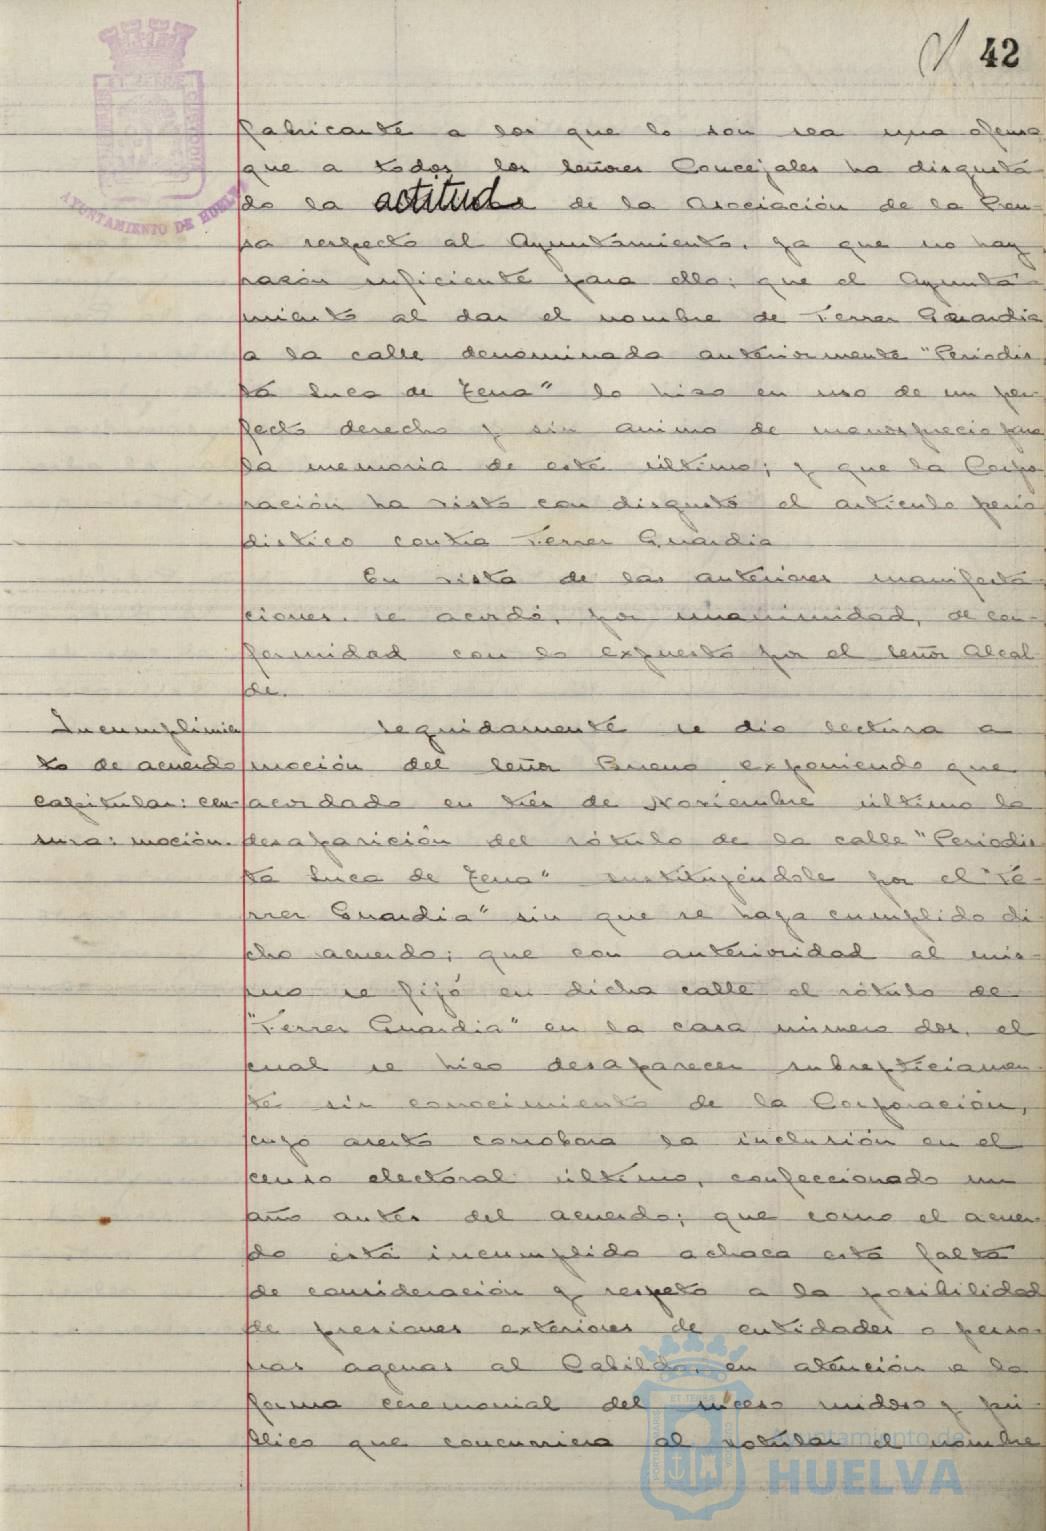 42
AYUNTAMIENTO DE HUELVA
fabricante a los que lo son sea una ofensa
que a todos los señores Concejales ha disgusta
do la actitud de la Asociación de la Pren-
sa respecto al Ayuntamiento, ya que no hay
razón suficiente para ello; que el Ayunta-
miento al dar el nombre de Ferrer Guardia
a la calle denominada anteriormente "Periodis
ta Luca de Tena" lo hizo en uso de un per-
fecto derecho y sin animo de menosprecio para
la memoria de este último; y que la Corpo
ración ha visto con disgusto el artículo perio
distico contra Ferrer Guardia
En vista de las anteriores manifesta
ciones, se acordó, por unanimidad, de con-
formidad con lo expuesto por el señor Alcal
de.
Incumplimien
to de acuerdo
capitular: cen-
sura: moción.
Seguidamente se dio lectura a
moción del señor Bueno exponiendo que
acordado en tres de Noviembre último la
desaparición del rótulo de la calle "Periodis
ta Luca de Tena" sustituyéndole por el "Fe-
rrer Guardia" sin que se haya cumplido di
cho acuerdo; que con anterioridad al mis-
mo se fijó en dicha calle el rótulo de
"Ferrer Guardia" en la casa número dos, el
cual se hizo desaparecer subrepticiamen-
te sin conocimiento de la Corporación,
cuyo aserto corrobora la inclusión en el
censo electoral último, confeccionado un
año antes del acuerdo; que como el acuer-
do está incumplido achaca esta falta
de consideración y respeto a la posibilidad
de presiones exteriores de entidades o perso-
nas agenas al Cabildo, en atención a la
forma ceremonial del suceso ruidoso y pú-
blico que concurriera al rotular el nombre
Ayuntamiento de
HUELVA